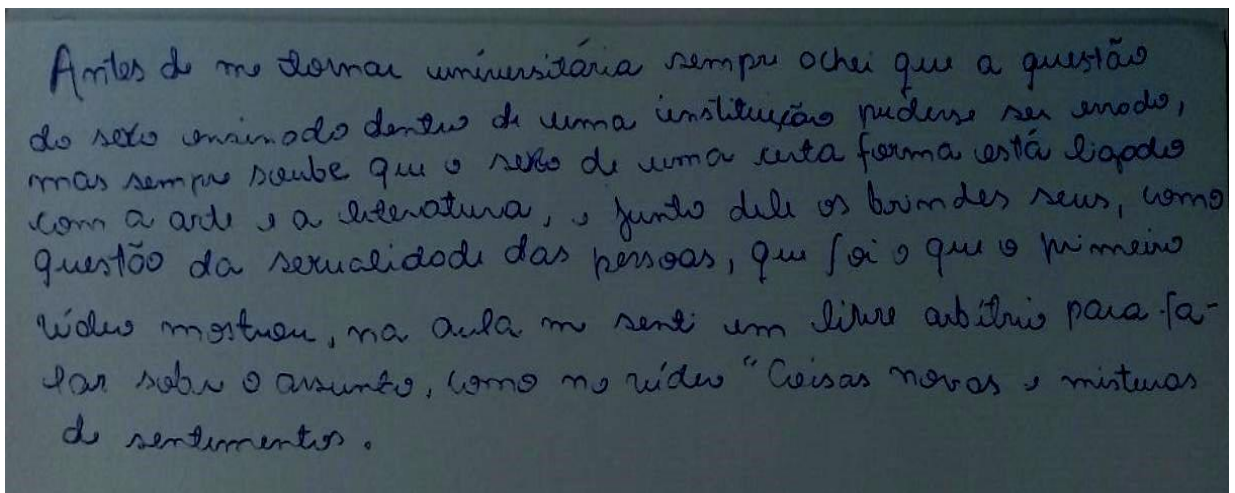 Antes de me tornar universitária sempre achei que a questão
do sexo ensinado dentro de uma instituição pudesse ser errado,
mas sempre soube que o sexo de uma certa forma está ligado
com a arte e a literatura, e junto dele os brindes seus, como
questão da sexualidade das pessoas, que foi o que o primeiro
vídeo mostrou, na aula me senti um livre arbítrio para fa-
lar sobre o assunto, como no vídeo "Coisas novas e misturas
de sentimentos.